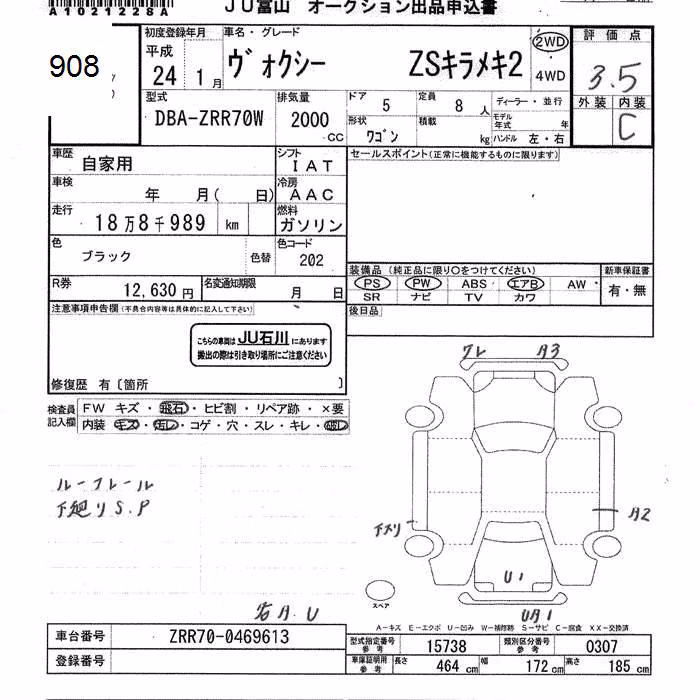 A1021228A
JU富山 オークション出品申込書
908
初度登録年月
平成
24 1月
車名・グレード
ヴォクシー ZSキラメキ2
2WD
4WD
評価点
3.5
外装 内装
C
型式
DBA-ZRR70W
排気量
2000 CC
ドア 5
定員 8人
形状 ワゴン
積載 kg
ディーラー・並行
モデル年式 年
ハンドル 左・右
車歴 自家用
シフト IAT
車検 年 月( 日)
冷房 AAC
走行 18万8千989 km
燃料 ガソリン
色 ブラック 色替
色コード 202
R券 12,630円
名変通知期限 月 日
セールスポイント(正常に機能するものに限ります)
装備品(純正品に限り○をつけてください)
PS PW ABS エアB AW
SR ナビ TV カワ
新車保証書
有・無
後日品
注意事項申告欄(不具合内容等は具体的に記入して下さい)
こちらの車両はJU石川にあります
搬出の際は引き取り場所にご注意ください
修復歴 有〔箇所 〕
検査員記入欄
FW キズ・飛石・ヒビ割・リペア跡・×要
内装 キズ・汚レ・コゲ・穴・スレ・キレ・
ワレ A3
ルーフレール
下廻りS.P
A2
下スリ
U1
スペア
UA1
右A.U
A-キズ E-エクボ U-凹み W-補修跡 S-サビ C-腐食 XX-交換済
車台番号 ZRR70-0469613
登録番号
型式指定番号 参考 15738
類別区分番号 参考 0307
車庫証明用 参考 長さ 464 cm 幅 172 cm 高さ 185 cm